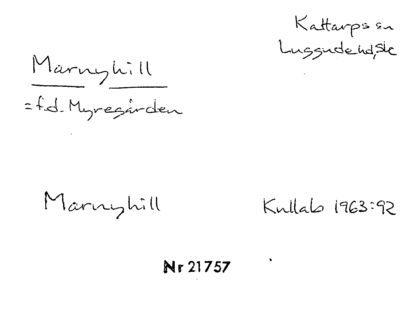 Kattarps sn
Luggude hd, Sk
Marnyhill
= f.d. Myregården
Marnyhill
Kullab 1963:92
Nr 21757